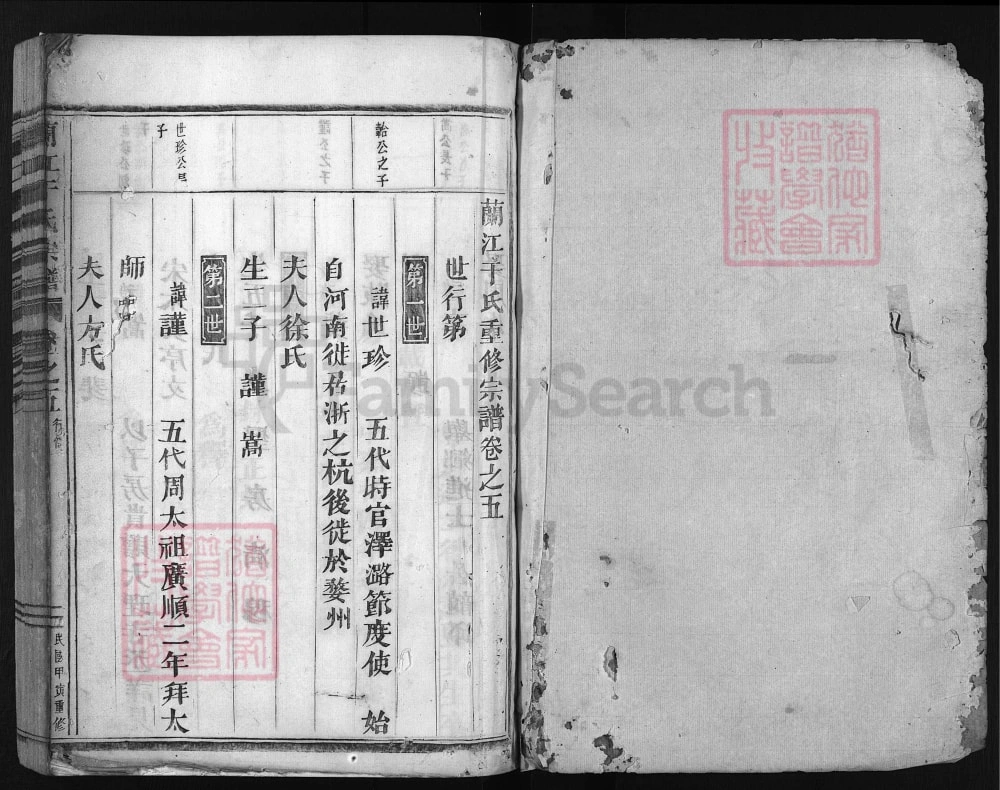 蘭江于氏重修宗譜卷之五
世行第
第一世
諱世珍 五代時官澤潞節度使 始
自河南徙居浙之杭後徙於婺州
夫人徐氏
生二子 謹 嵩
第二世
諱謹 五代周太祖廣順二年拜太
師
夫人方氏
公之子
世珍公
子
民國甲戌重修
FamilySearch